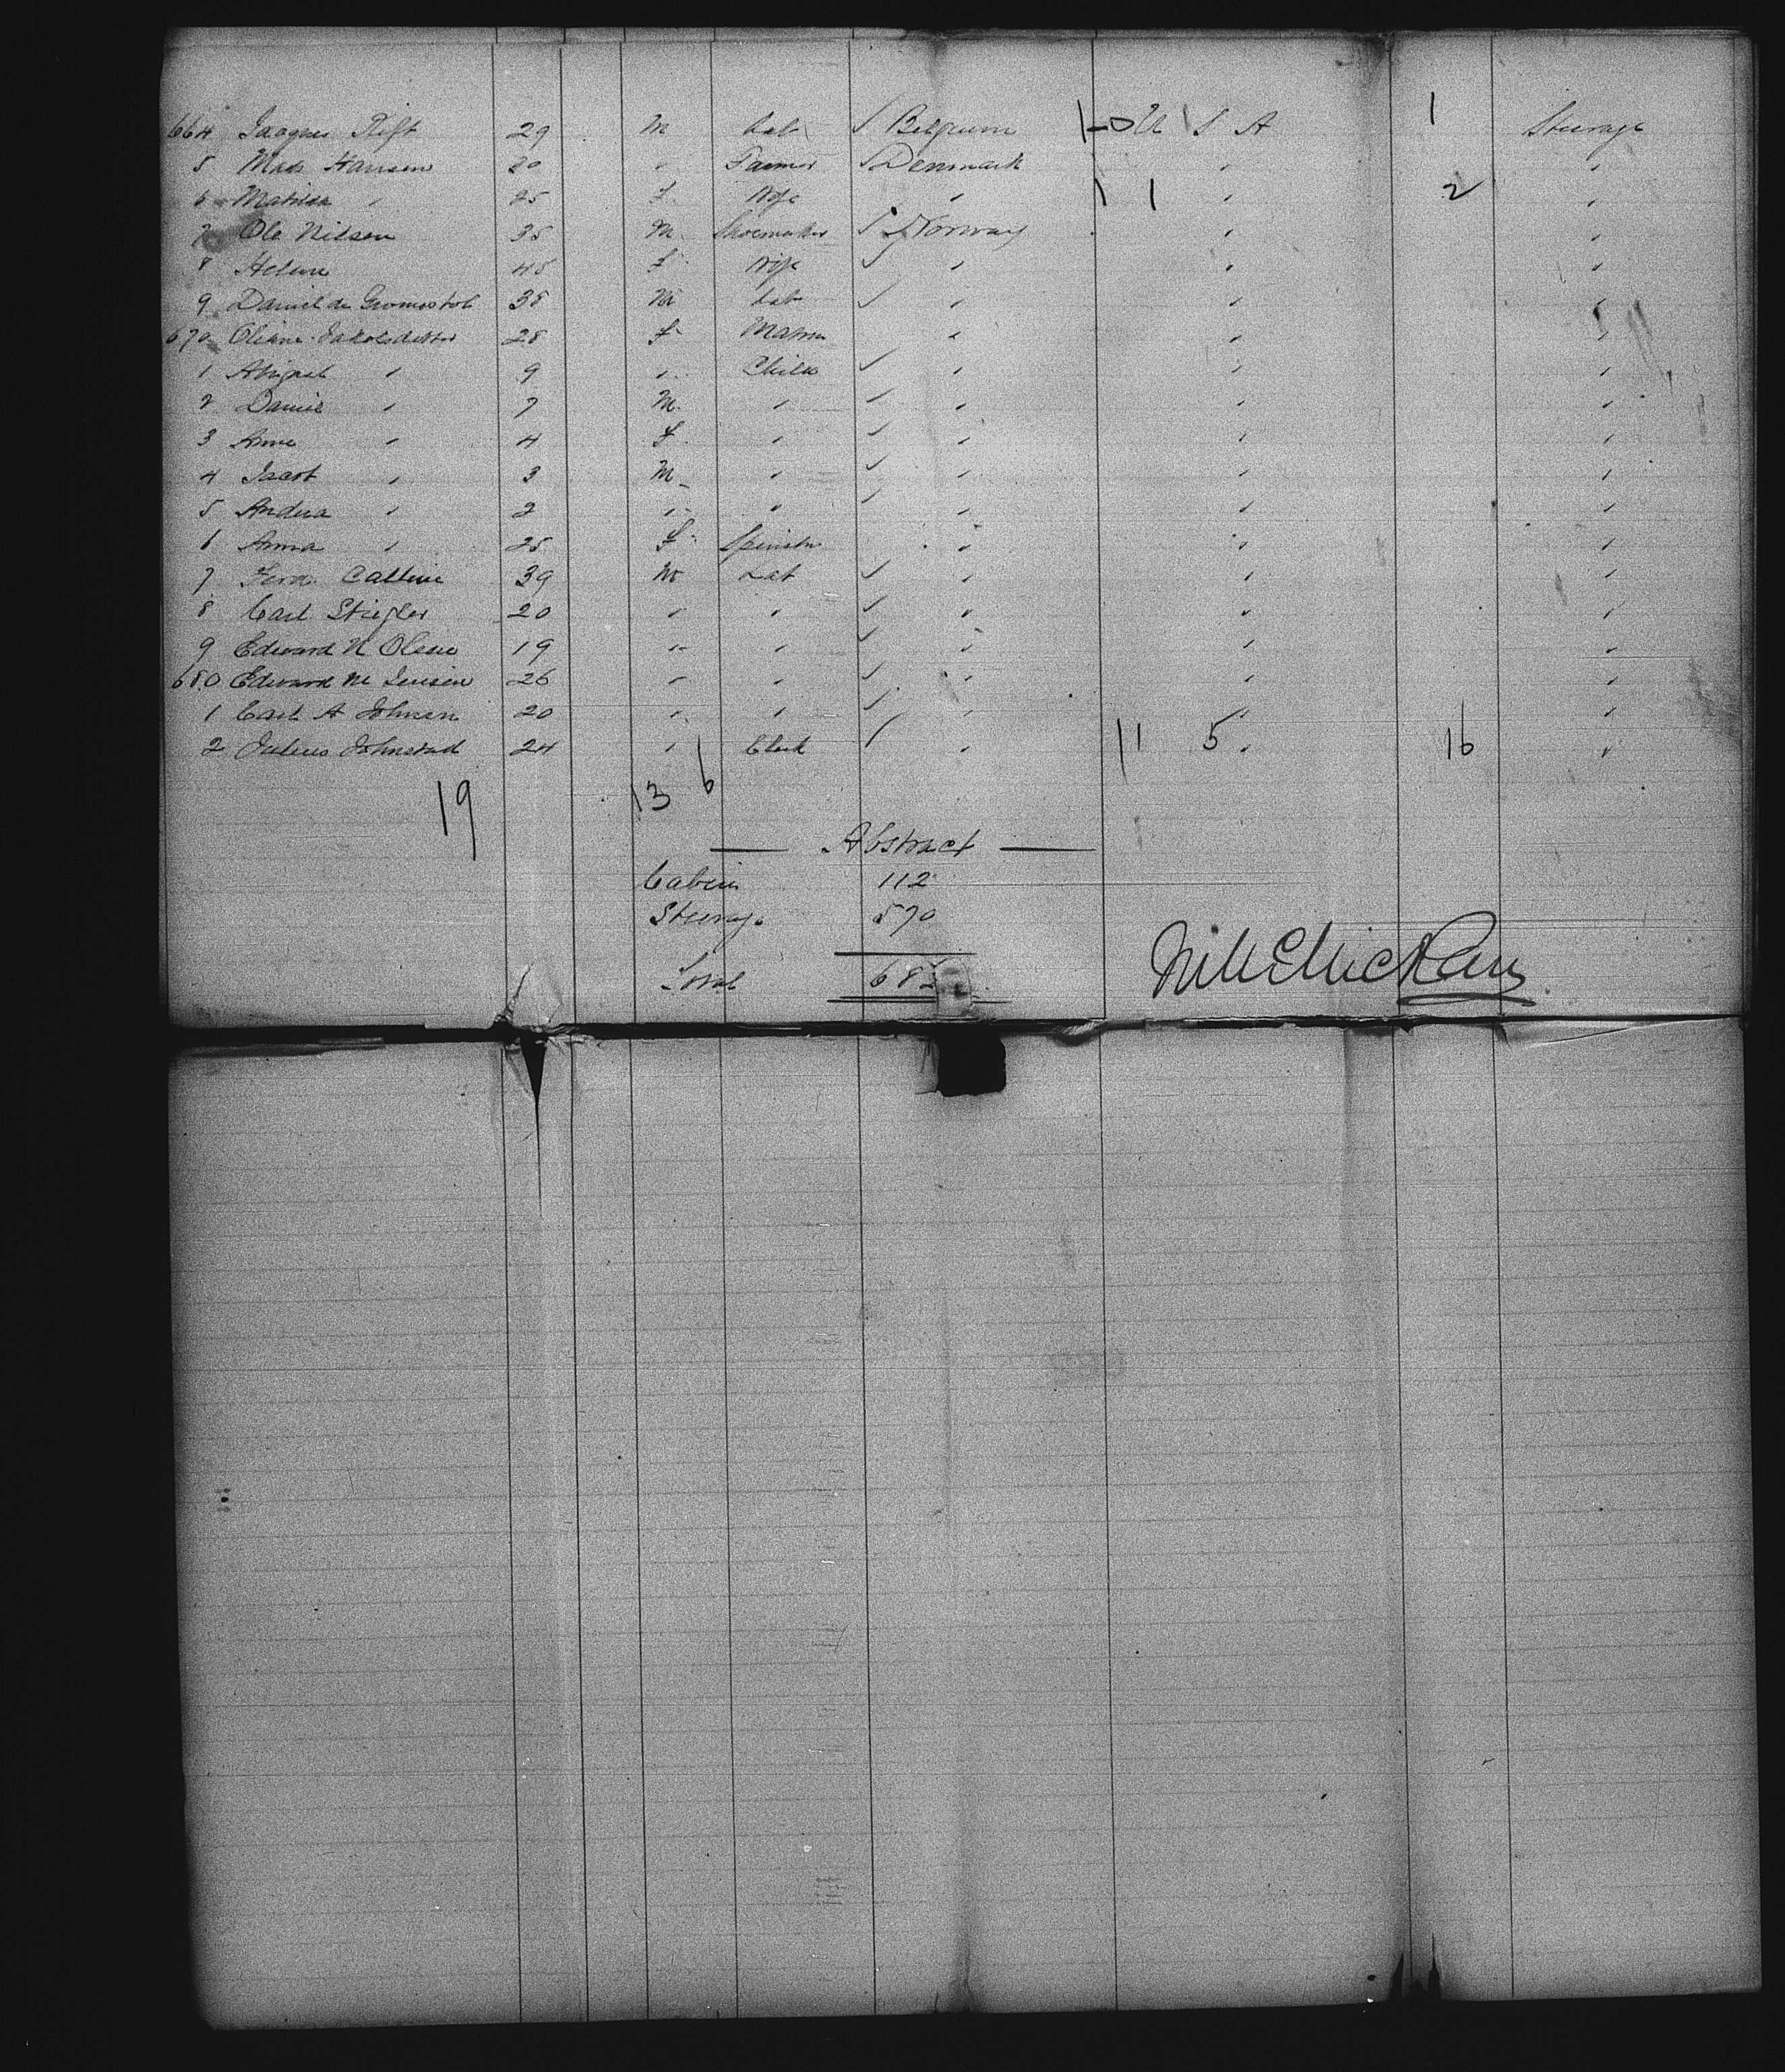 664 Jaques Rift 29 M Lab ✓ Belgium 1 - 0 U S A 1 Steerage
5 Mads Hansen 30 " Farmer ✓ Denmark " "
6 Matilda " 25 F Wife " 1 1 " 2 "
7 Ole Nilsen 35 M Shoemaker ✓ Norway " "
8 Helene 45 F Wife ✓ " " "
9 Daniel de 38 M Lab ✓ " " "
670 Oliane Jakobsdatter 28 F Matron " " "
1 Abigael " 9 " Child ✓ " " "
2 Daniel " 7 M " ✓ " " "
3 Anne " 4 F " ✓ " " "
4 Jacob " 3 M " ✓ " " "
5 Andrea " 2 " " ✓ " " "
6 Anna " 25 F Spinster " " "
7 Ferd. Calline 39 M Lab ✓ " " "
8 Carl Stiegler 20 " " ✓ " " "
9 Edward N Olsen 19 " " ✓ " " "
680 Edward M Jensen 26 " " ✓ " " "
1 Carl A Johnsen 20 " " ✓ " " "
2 Julius Johnstad 24 " Clerk ✓ " 11 5 " 16 "
19 13 6
Abstract
Cabin 112
Steerage 570
Total 682